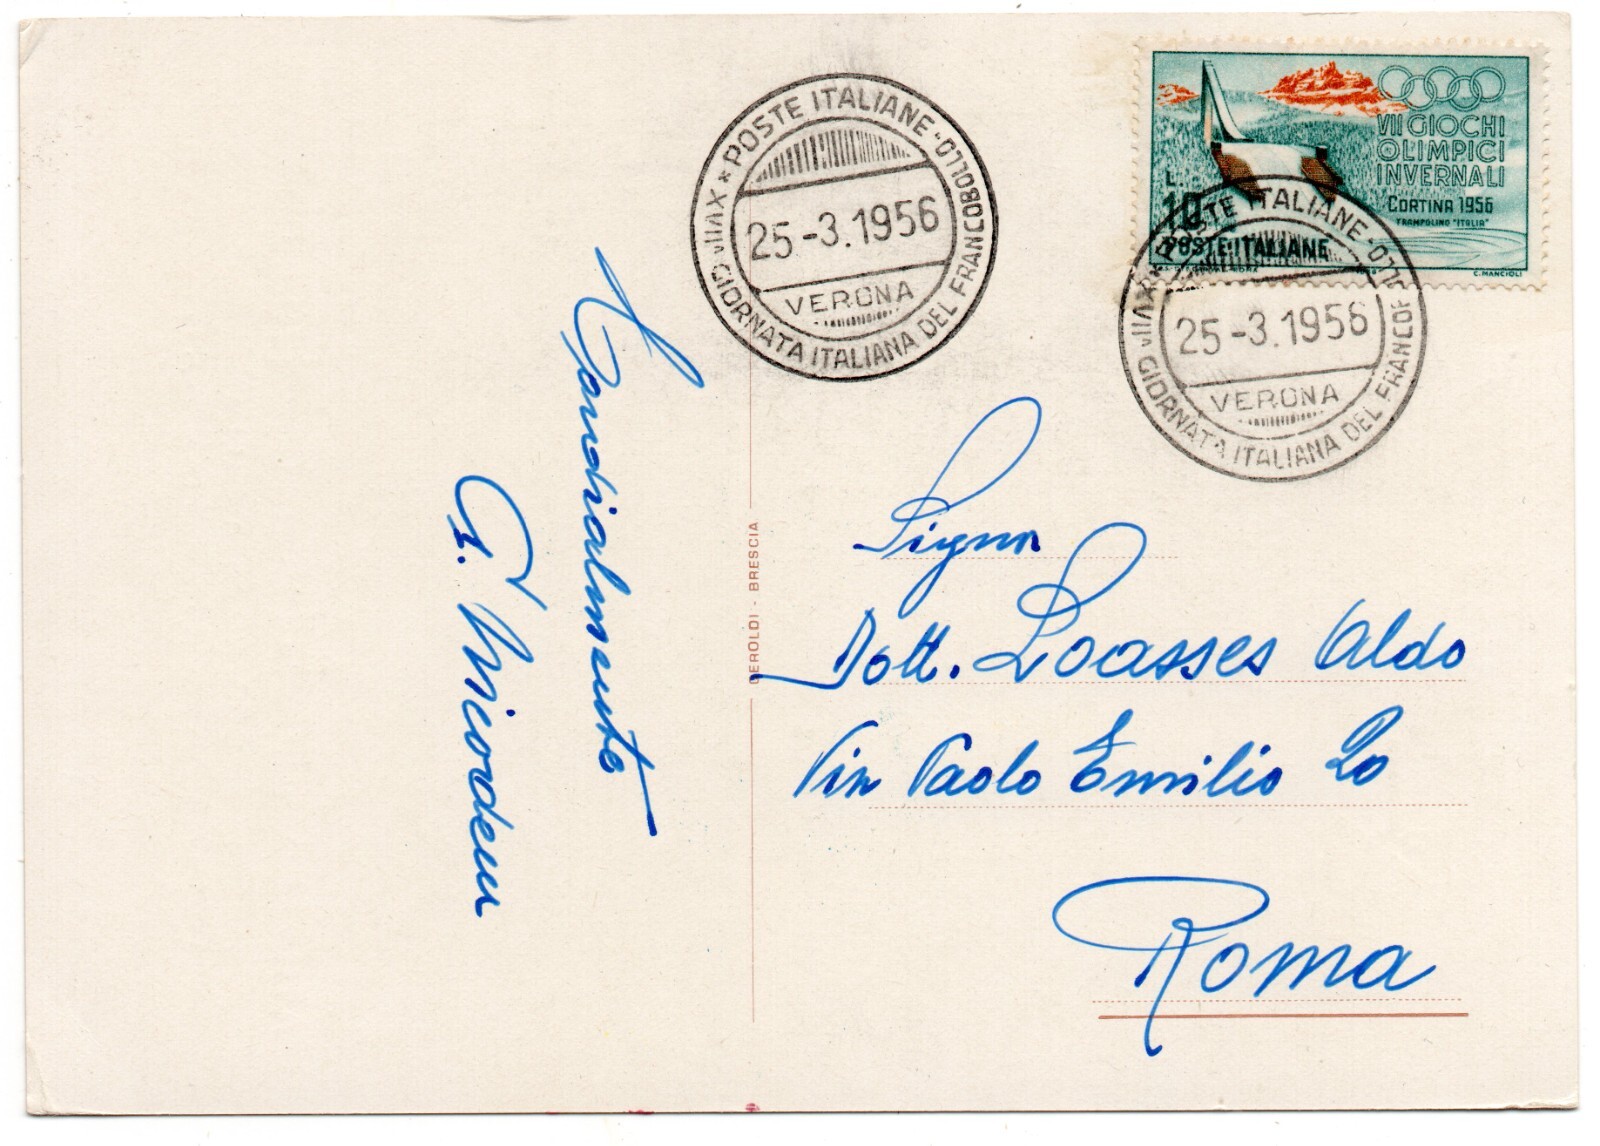 POSTE ITALIANE
XVIIª GIORNATA ITALIANA DEL FRANCOBOLLO
25-3.1956
VERONA
VII GIOCHI
OLIMPICI
INVERNALI
CORTINA 1956
TRAMPOLINO "ITALIA"
L.
10
POSTE ITALIANE
C. MANCIOLI
POSTE ITALIANE
XVIIª GIORNATA ITALIANA DEL FRANCOBOLLO
25-3.1956
VERONA
Cordialmente
GEROLDI - BRESCIA
Dott. Loasses Aldo
Via Paolo Emilio
Roma